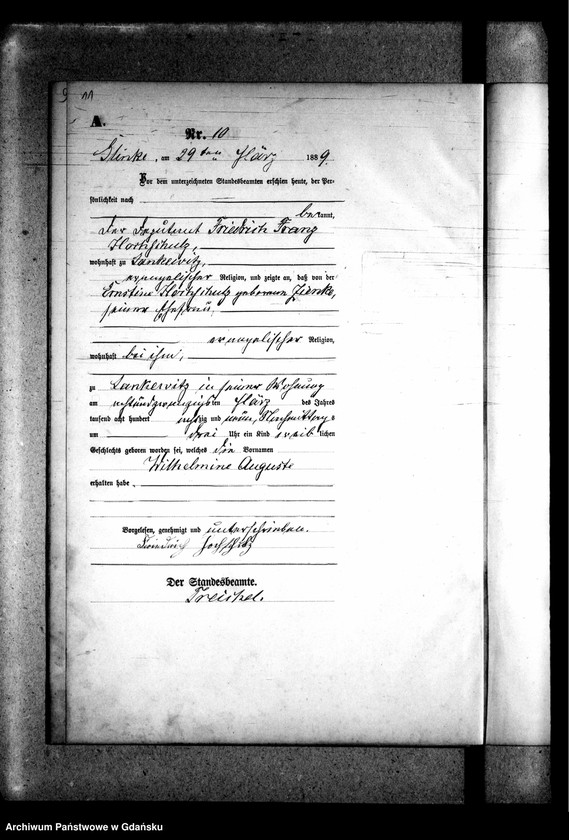 9 11
A.
Nr. 10
Glinke, am 29ten März 1889.
Vor dem unterzeichneten Standesbeamten erschien heute, der Per-
sönlichkeit nach
bekannt,
der Friedrich Franz
wohnhaft zu Lankewitz,
evangelischer Religion, und zeigte an, daß von der
Ernstine geborenen
seiner Ehefrau,
evangelischer Religion,
wohnhaft bei ihm,
zu Lankewitz in seiner Wohnung
am achtundzwanzigsten März des Jahres
tausend acht hundert achtzig und neun, Nachmittags
um drei Uhr ein Kind weiblichen
Geschlechts geboren worden sei, welches die Vornamen
Wilhelmine Auguste
erhalten habe.
Vorgelesen, genehmigt und unterschrieben.
Friedrich
Der Standesbeamte.
Treichel.
Archiwum Państwowe w Gdańsku